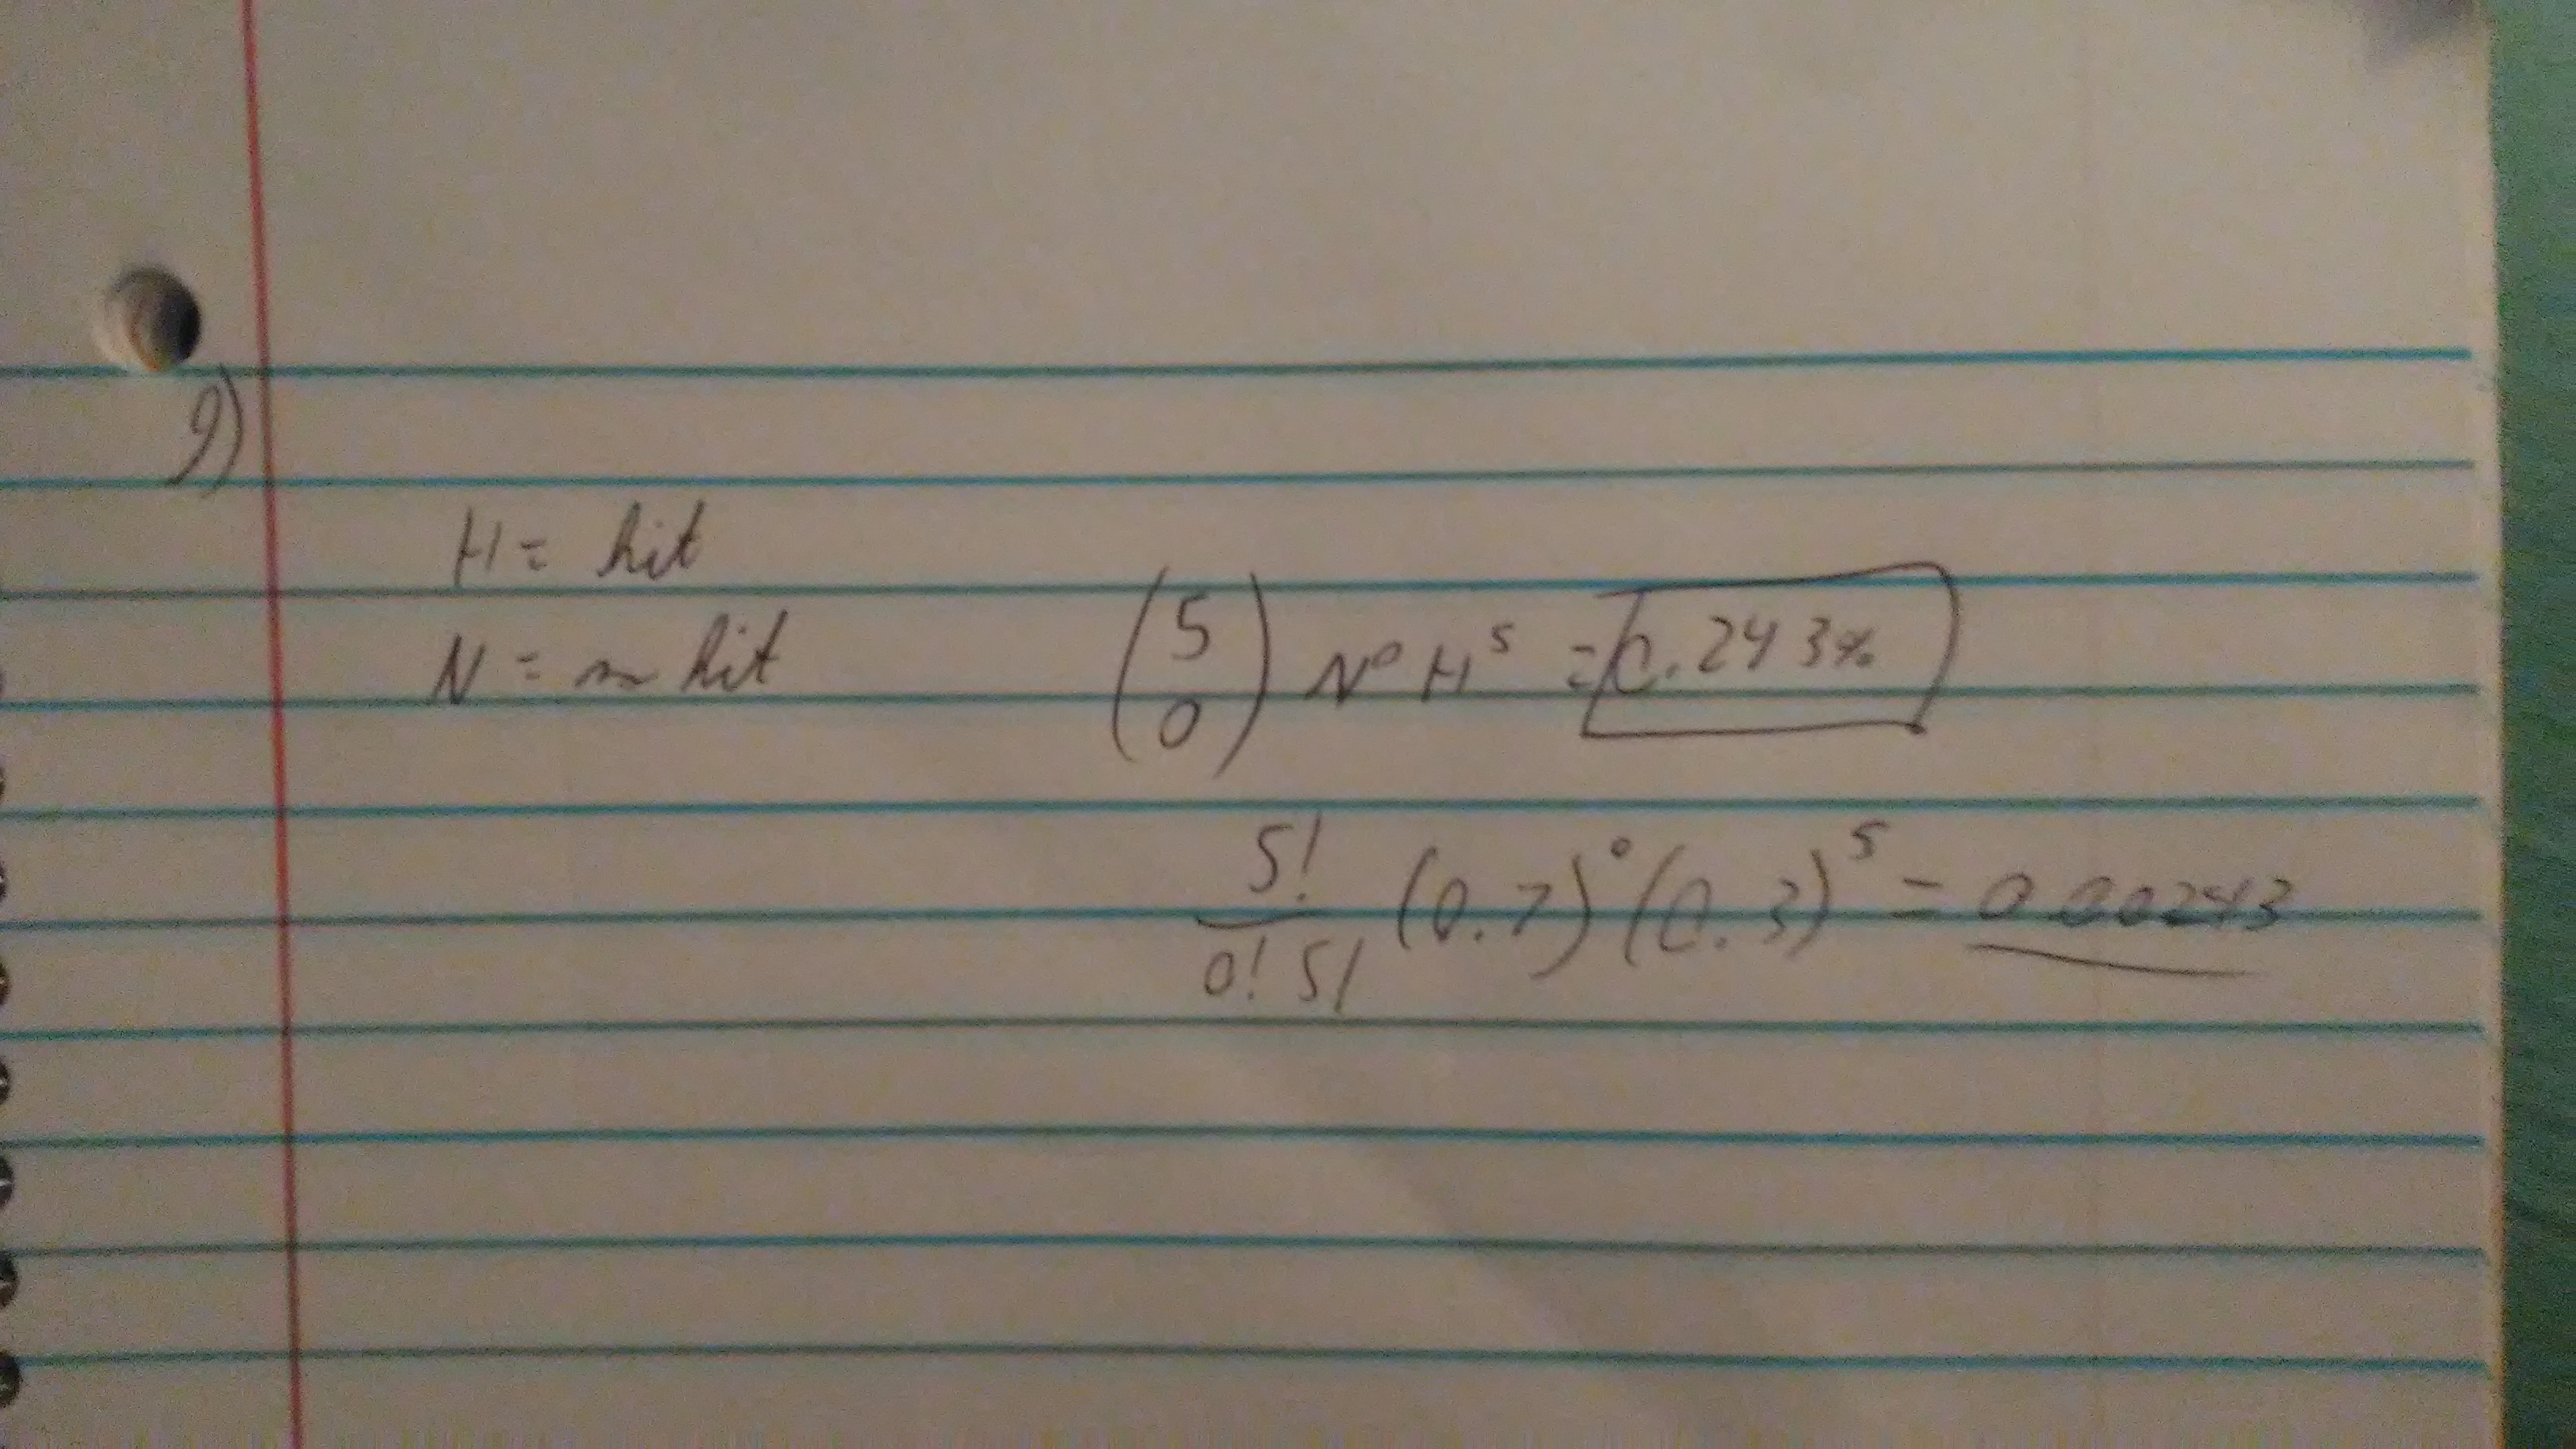 9)
H = hit
N = no hit
(5 0) N⁰H⁵ = 0.243%
5!/0!5! (0.7)⁰(0.3)⁵ = 0.00243